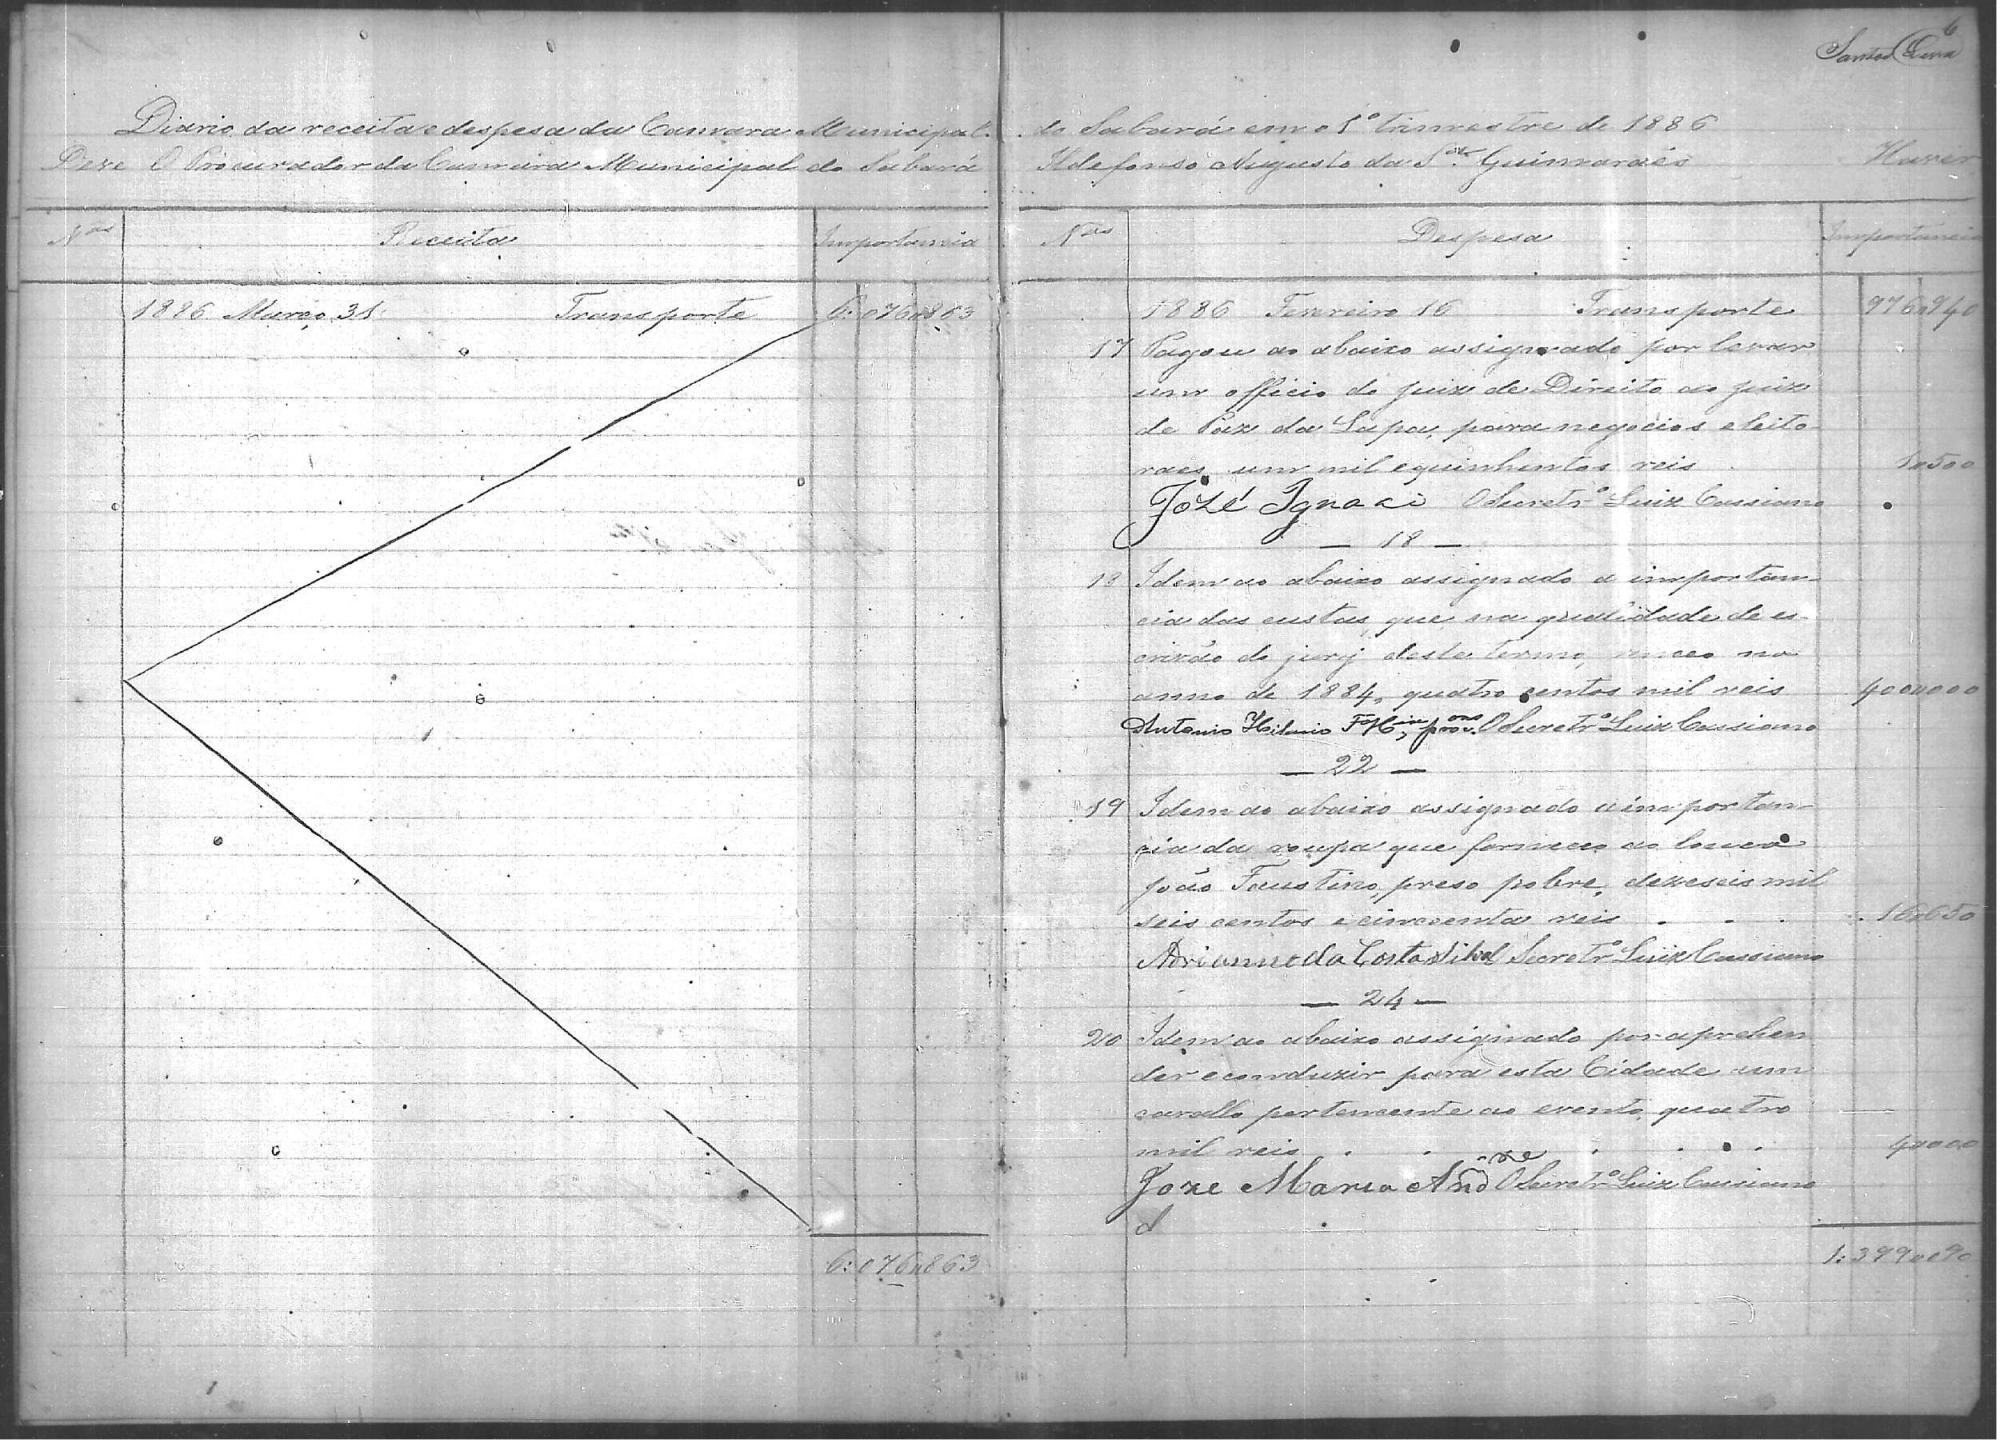 6
Santos Lima
Diario da receita e despesa da Camara Municipal
Deve O Procurador da Camara Municipal do Sabará
Nos Receita Importancia
1886 Março 31 Transporte 6:076$863
6:076$863
do Sabará em o 1º trimestre de 1886
Ildefonso Augusto da Sª Guimarães Haver
Nos Despesa Importancia
1886 Fevereiro 16 Transporte 976$940
17 Pagou ao abaixo assignado por levar
um officio do Juiz de Direito ao Juiz
de Paz da Lapa, para negocios eleito
raes, um mil e quinhentos reis 1$500
Jozé Ignaci O Secretrº Luiz Cassiano
— 18 —
18 Idem ao abaixo assignado a importan-
cia das custas, que na qualidade de es-
crivão do jury deste termo, venceo no
anno de 1884, quatro centos mil reis 400$000
Antonio Hilario O Secretrº Luiz Cassiano
— 22 —
19 Idem ao abaixo assignado a importan-
cia da roupa que forneceo ao louco
João Faustino, preso pobre, dezeseis mil
seis centos e cincoenta reis . . . 16$650
Adrianno da Costa Silva O Secretrº Luiz Cassiano
— 24 —
20 Idem ao abaixo assignado por aprehen
der e conduzir para esta Cidade um
cavallo pertencente ao evento, quatro
mil reis . . . . . . 4$000
Joze Maria O Secretrº Luiz Cassiano
1:399$090